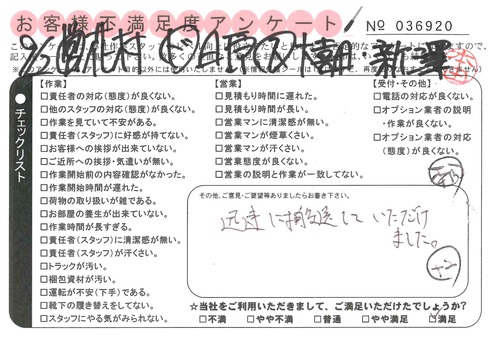 お客様不満足度アンケート
No 036920
チェックリスト
【作業】
□責任者の対応(態度)が良くない。
□他のスタッフの対応(態度)が良くない。
□作業を見ていて不安がある。
□責任者(スタッフ)に好感が持てない。
□お客様への挨拶が出来ていない。
□ご近所への挨拶・気遣いが無い。
□作業開始前の内容確認がなかった。
□作業開始時間が遅れた。
□荷物の取り扱いが雑である。
□お部屋の養生が出来ていない。
□作業時間が長すぎる。
□責任者(スタッフ)に清潔感が無い。
□責任者(スタッフ)が汗くさい。
□トラックが汚い。
□梱包資材が汚い。
□運転が不安(下手)である。
□靴下の履き替えをしてない。
□スタッフにやる気がみられない。
【営業】
□見積もり時間に遅れた。
□見積もり時間が長い。
□営業マンに清潔感が無い。
□営業マンが煙草くさい。
□営業マンが汗くさい。
□営業態度が良くない。
□営業の説明と作業が一致してない。
【受付・その他】
□電話の対応が良くない。
□オプション業者の説明
・作業が良くない。
□オプション業者の対応
(態度)が良くない。
その他、ご意見・ご要望等ありましたらお書き下さい。
迅速に搬送して いただけ
ました。
☆当社をご利用いただきまして、ご満足いただけたでしょうか?
□不満 □やや不満 □普通 □やや満足 □満足